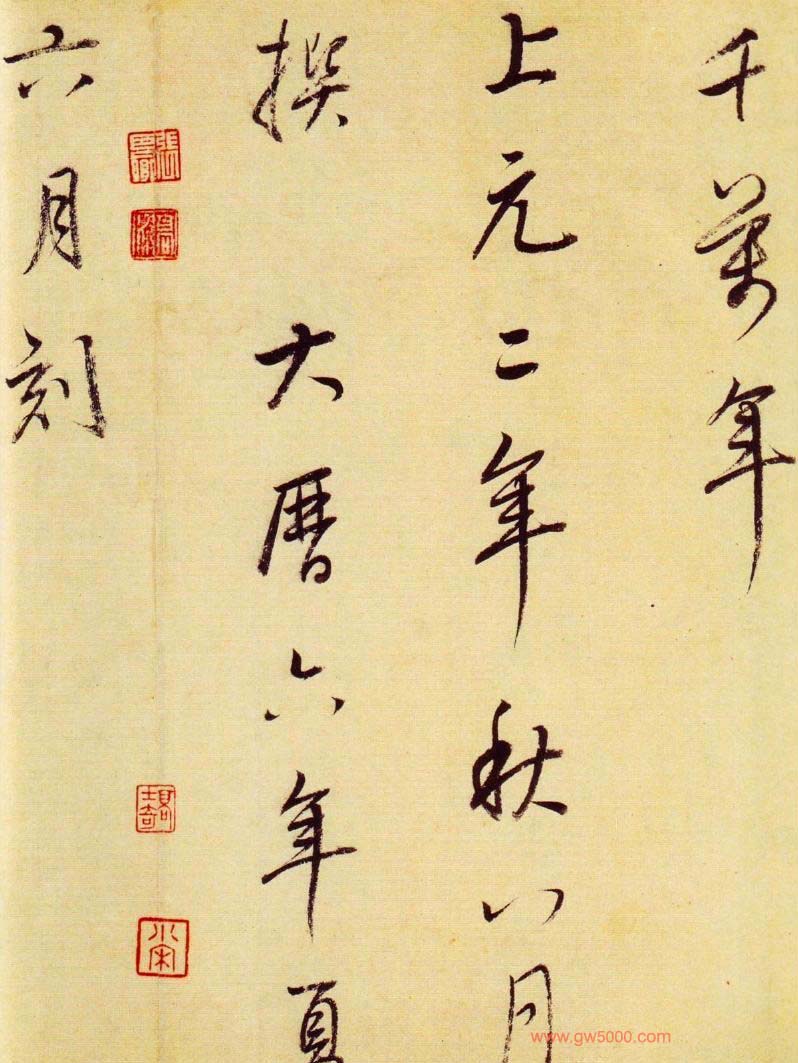 千萬年
上元二年秋八月
撰 大曆六年夏
六月刻
www.gw5000.com